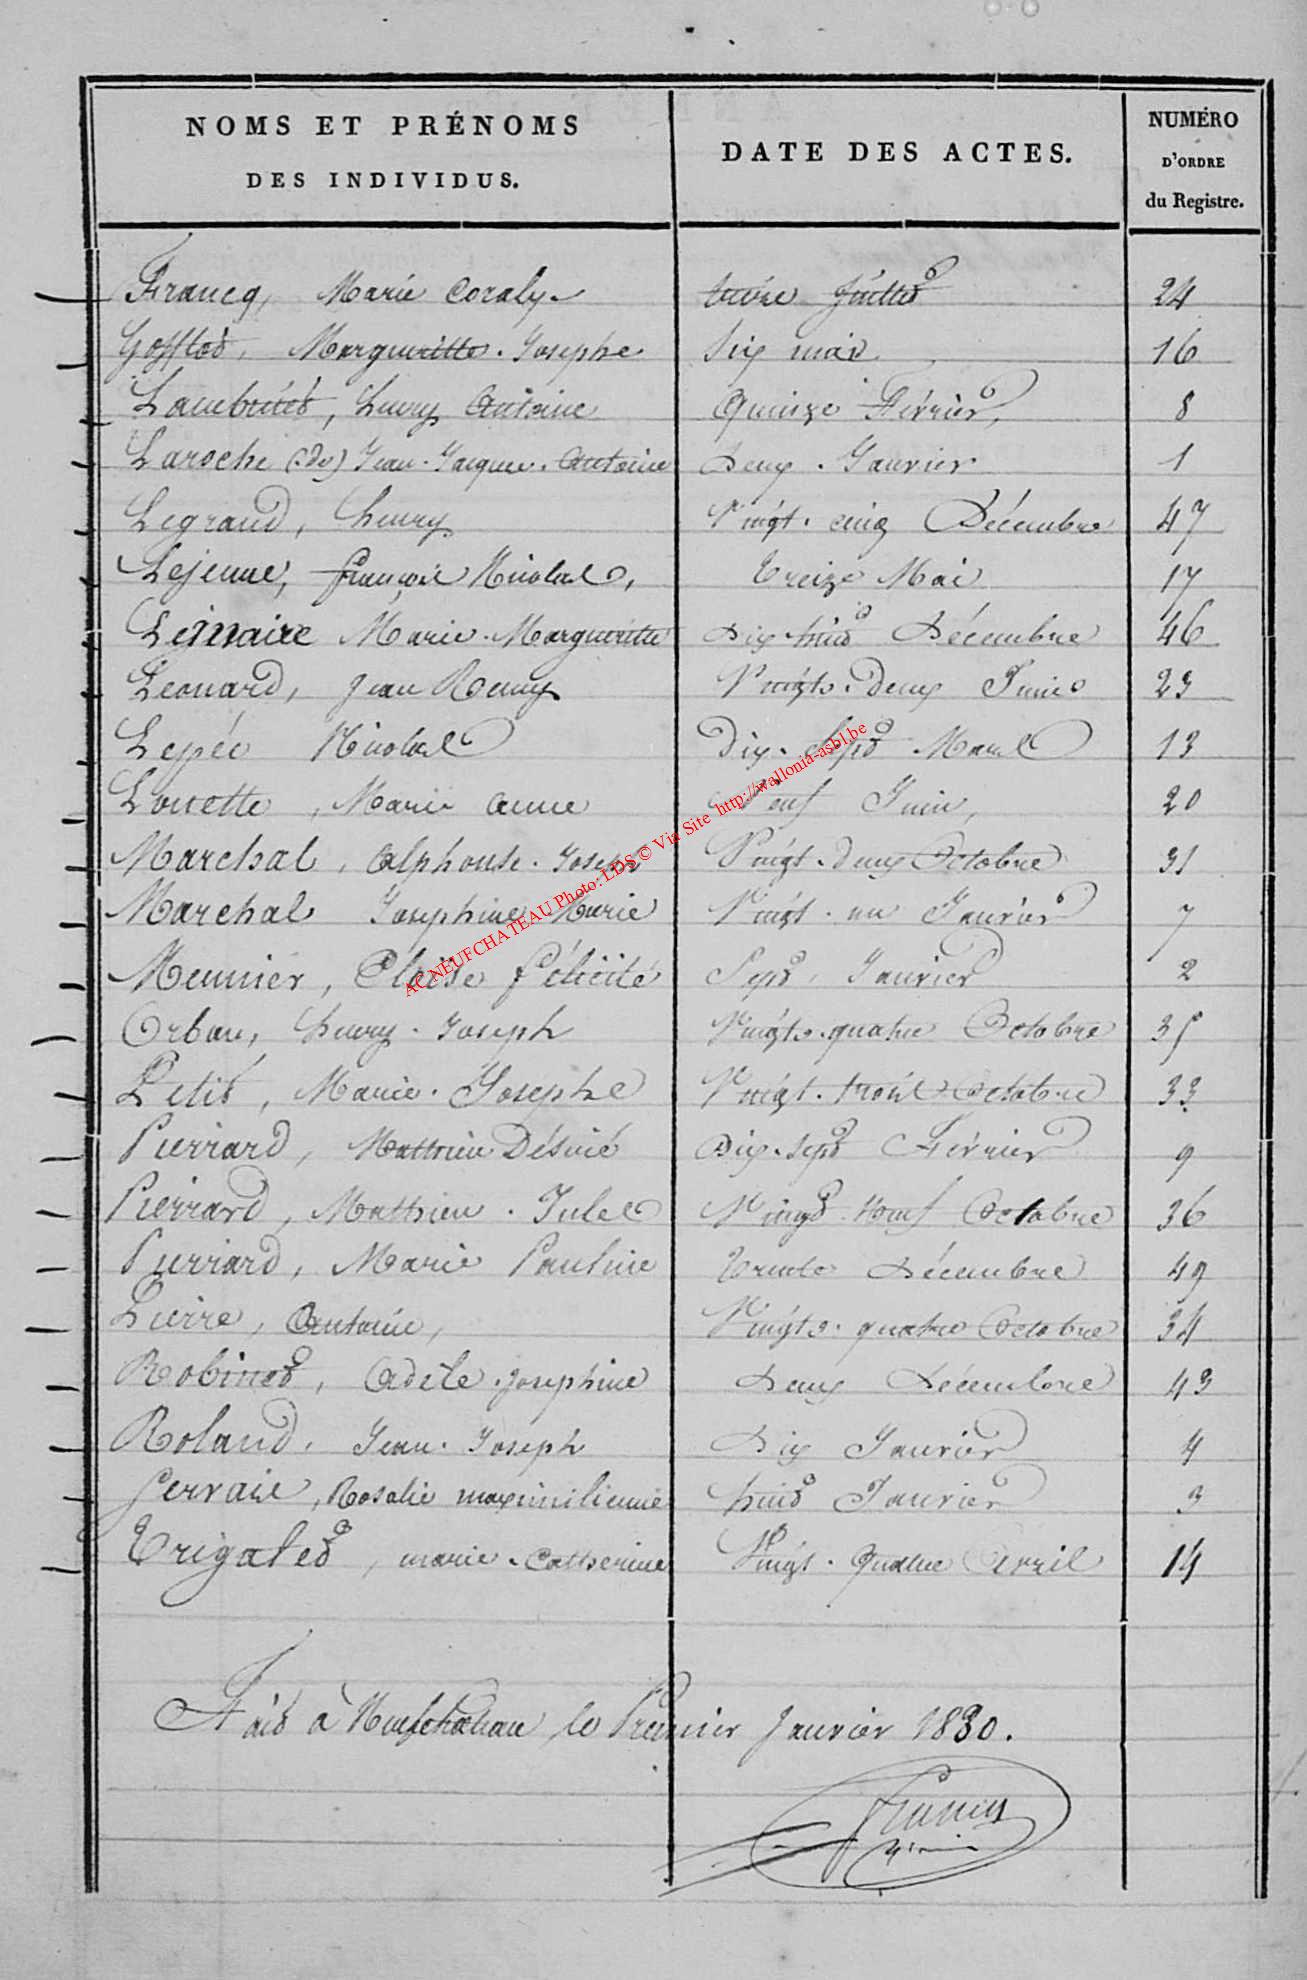 NOMS ET PRÉNOMS
DES INDIVIDUS.
DATE DES ACTES.
NUMÉRO
D'ORDRE
du Registre.
Francq, Marie Coraly. Juillet 24
Margueritte. Josephe Six mai 16
Henry Antoine Quinze Février, 8
Laroche (de) Jean. Jacques. Antoine Deux. Janvier 1
Legrand, henry Vingt. cinq Décembre 47
Lejeune, françois Nicolas, Treize Mai 17
Lemaire Marie. Margueritte Dix huit Décembre 46
Leonard, jean Remy Vingt. Deux Juin 23
Lepée Nicolas Dix. Sept Mars 13
Louette, Marie anne Neuf Juin, 20
Marchal, Alphonse. Joseph Vingt. deux Octobre 31
Marchal Josephine Marie Vingt. un Janvier 7
Meunier, Eloïse félicité Sept. Janvier 2
Orban, henry. Joseph Vingt. quatre Octobre 35
Petit, Marie. Josephe Vingt. trois Octobre 33
Pierrard, Mathieu Désiré Dix. sept Février 9
Pierrard, Mathieu. Jules Vingt. Neuf Octobre 36
Pierrard, Marie Pauline Trente Décembre 49
Pierre, Antoine, Vingt. quatre Octobre 34
Robinet, Adèle. Josephine Deux Décembre 43
Roland. Jean. Joseph Dix Janvier 4
Servais, Rosalie maximilienne huit Janvier 3
Trigalet, marie. Catherine Vingt. Quatre Avril 14
Fait à Neufchateau le Premier Janvier 1830.
AC NEUFCHATEAU Photo: LDS © Via Site http://wallonia-asbl.be